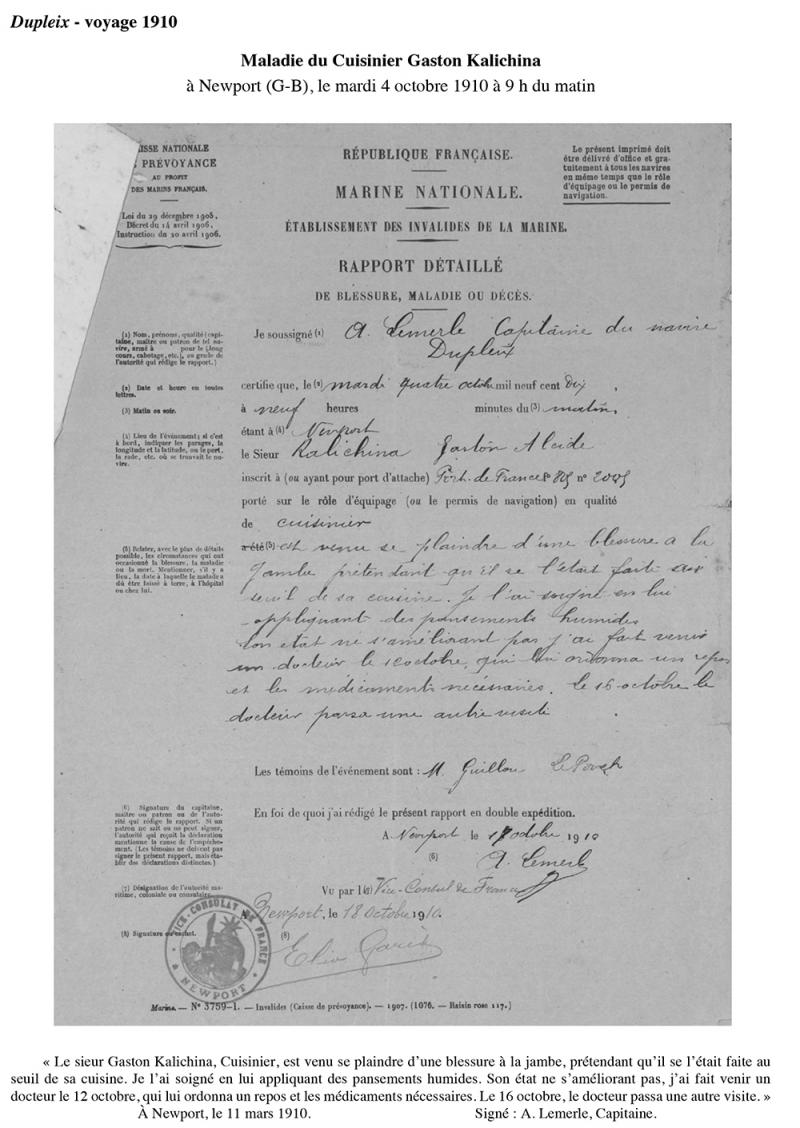 Dupleix - voyage 1910
Maladie du Cuisinier Gaston Kalichina
à Newport (G-B), le mardi 4 octobre 1910 à 9 h du matin
ISSE NATIONALE
PRÉVOYANCE
AU PROFIT
DES MARINS FRANÇAIS.
Loi du 29 décembre 1905,
Décret du 14 avril 1906,
Instruction du 20 avril 1906.
RÉPUBLIQUE FRANÇAISE.
MARINE NATIONALE.
ÉTABLISSEMENT DES INVALIDES DE LA MARINE.
RAPPORT DÉTAILLÉ
DE BLESSURE, MALADIE OU DÉCÈS.
Le présent imprimé doit
être délivré d'office et gra-
tuitement à tous les navires
en même temps que le rôle
d'équipage ou le permis de
navigation.
(1) Nom, prénoms, qualité (capi-
taine, maître ou patron de tel na-
vire, armé à pour le (long
cours, cabotage, etc.), ou grade de
l'autorité qui rédige le rapport.)
Je soussigné (1) A. Lemerle Capitaine du navire
Dupleix
(2) Date et heure en toutes
lettres.
(3) Matin ou soir.
certifie que, le (2) mardi quatre octobre mil neuf cent dix,
à neuf heures minutes du (3) matin,
(4) Lieu de l'événement; si c'est
à bord, indiquer les parages, la
longitude et la latitude, ou le port,
la rade, etc. où se trouvait le na-
vire.
étant à (4) Newport
le Sieur Kalichina Gaston Alcide
inscrit à (ou ayant pour port d'attache) Fort-de-France n°
porté sur le rôle d'équipage (ou le permis de navigation) en qualité
de cuisinier
(5) Relater, avec le plus de détails
possible, les circonstances qui ont
occasionné la blessure, la maladie
ou la mort. Mentionner, s'il y a
lieu, la date à laquelle le malade a
dû être laissé à terre, à l'hôpital
ou chez lui.
a été (5) est venu se plaindre d'une blessure a la
jambe prétendant qu'il se l'était faite au
seuil de sa cuisine. Je l'ai soigné en lui
appliquant des pansements humides
Son état ne s'améliorant pas j'ai fait venir
un docteur le octobre, qui lui ordonna un repos
et les médicaments nécessaires. le 16 octobre le
docteur passa une autre visite
Les témoins de l'événement sont : M. Guillou
(6) Signature du capitaine,
maître ou patron ou de l'auto-
rité qui rédige le rapport. Si un
patron ne sait ou ne peut signer,
l'autorité qui reçoit la déclaration
mentionne la cause de l'empêche-
ment. (Les témoins ne doivent pas
signer le présent rapport, mais éta-
blir des déclarations distinctes.)
En foi de quoi j'ai rédigé le présent rapport en double expédition.
A Newport le 17 octobre 1910
(6) A. Lemerle
(7) Désignation de l'autorité ma-
ritime, coloniale ou consulaire.
Vu par l Vice-Consul de France
A Newport, le 18 Octobre 1910.
(8) Signature et cachet.
(8)
VICE-CONSULAT DE FRANCE
NEWPORT
Marine. — N° 3759-1. — Invalides (Caisse de prévoyance). — 1907. (1076. — Raisin rose 117.)
« Le sieur Gaston Kalichina, Cuisinier, est venu se plaindre d'une blessure à la jambe, prétendant qu'il se l'était faite au
seuil de sa cuisine. Je l'ai soigné en lui appliquant des pansements humides. Son état ne s'améliorant pas, j'ai fait venir un
docteur le 12 octobre, qui lui ordonna un repos et les médicaments nécessaires. Le 16 octobre, le docteur passa une autre visite. »
À Newport, le 11 mars 1910. Signé : A. Lemerle, Capitaine.